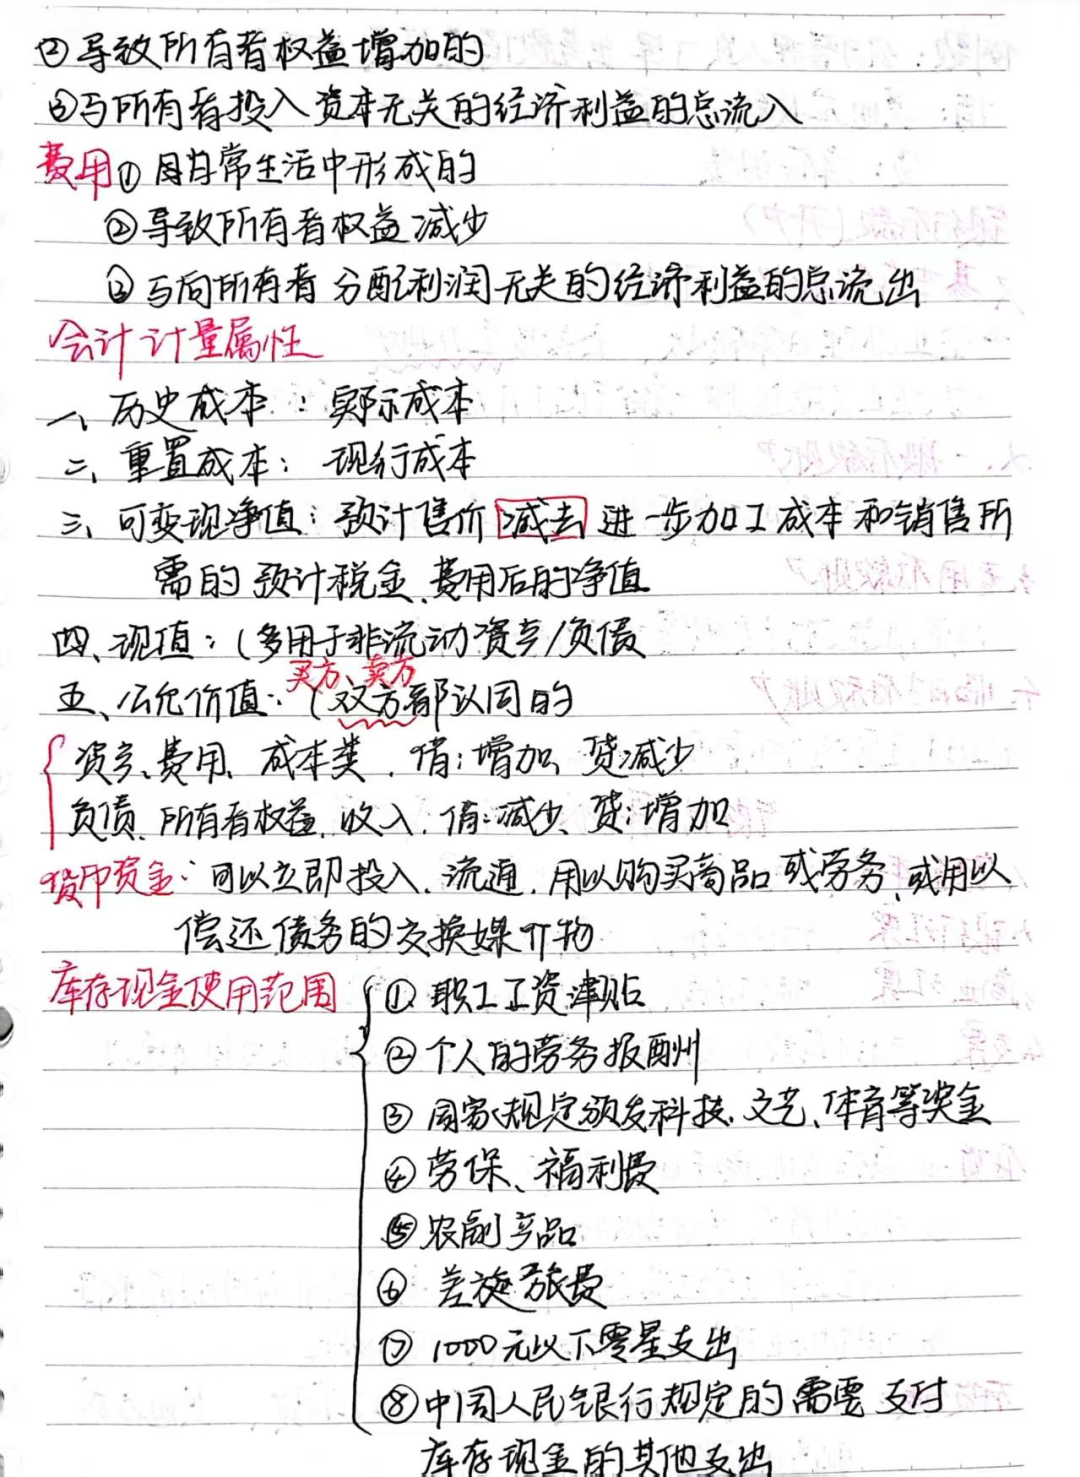 ②导致所有者权益增加的
③与所有者投入资本无关的经济利益的总流入
费用①因日常生活中形成的
②导致所有者权益减少
③与向所有者分配利润无关的经济利益的总流出
会计计量属性
一、历史成本：实际成本
二、重置成本：现行成本
三、可变现净值：预计售价减去进一步加工成本和销售所
需的预计税金、费用后的净值
四、现值：(多用于非流动资产/负债
买方、卖方
五、公允价值：(双方都认同的
资产、费用、成本类，借：增加、贷减少
负债、所有者权益、收入，借：减少、贷：增加
货币资金：可以立即投入、流通，用以购买商品或劳务、或用以
偿还债务的交换媒介物
库存现金使用范围 ①职工工资津贴
②个人的劳务报酬
③国家规定颁发科技、文艺、体育等奖金
④劳保、福利费
⑤农副产品
⑥差旅费
⑦1000元以下零星支出
⑧中国人民银行规定的需要支付
库存现金的其他支出